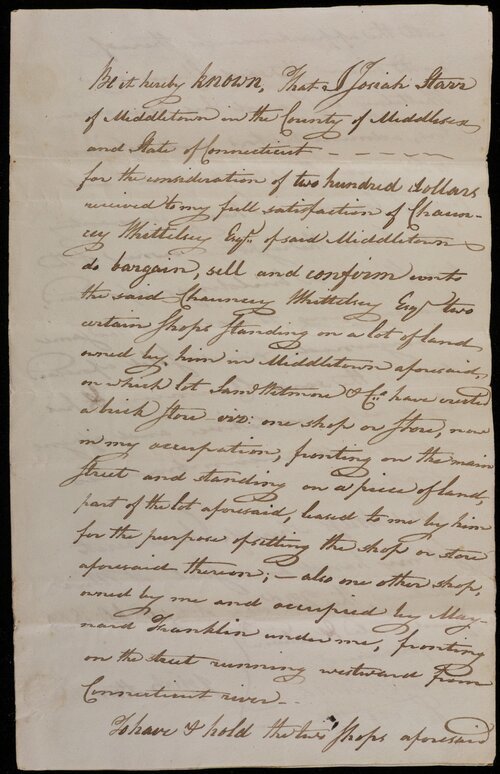 Be it hereby known, That I Josiah Starr
of Middletown in the County of Middlesex
and State of Connecticut - - - -
for the consideration of two hundred dollars
received to my full satisfaction of Chaun-
cey Whittelsey Esqr. of said Middletown
do bargain, sell and confirm unto
the said Chauncey Whittelsey Esqr two
certain shops standing on a lot of land
owned by him in Middletown aforesaid,
on which lot Saml Wetmore & Co. have erected
a brick store viz: one shop or store, now
in my occupation, fronting on the main
street and standing on a piece of land,
part of the lot aforesaid, leased to me by him
for the purpose of setting the shop or store
aforesaid thereon; - also one other shop,
owned by me and occupied by May-
nard Franklin under me, fronting
on the street running westward from
Connecticut river - -
To have & hold the two shops aforesaid